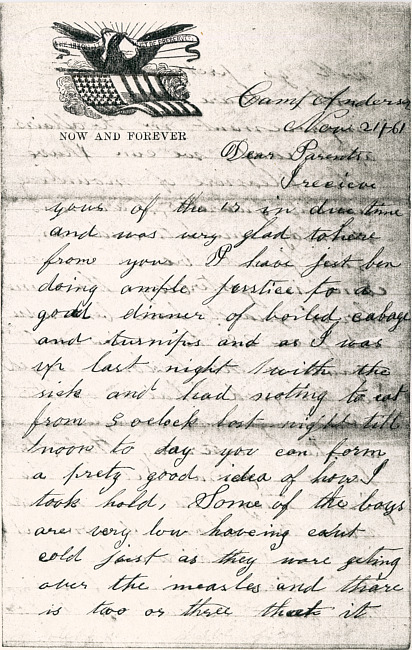 NOW AND FOREVER
Camp Anderson
Nov 21 / 61
Dear Parents
I recieve
yours of the 15 in due time
and was very glad to here
from you I have just ben
doing ample justice to a
good dinner of boiled cabage
and turnips and as I was
up last night with the
sick and had noting to eat
from 5 oclock last night till
noon to day you can form
a prety good idea of how I
took hold, Some of the boys
are very low haveing caut
cold just as they ware geting
over the measles and thare
is two or three that it